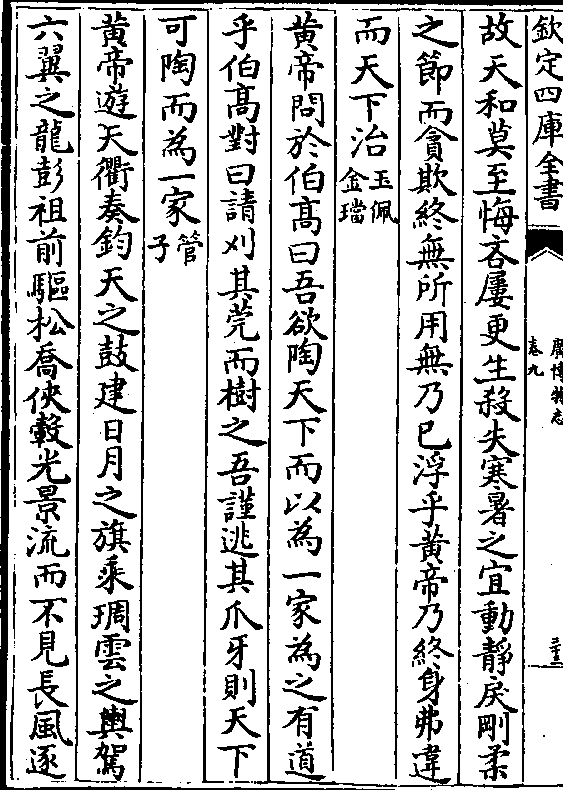 欽定四庫全書
廣博物志
卷九
二十三
故天和莫至悔吝屢更生殺失寒暑之宜動靜戾剛柔
之節而貪欺終無所用無乃已浮乎黃帝乃終身弗違
而天下治玉佩金璫
黃帝問於伯髙曰吾欲陶天下而以為一家為之有道
乎伯髙對曰請刈其莞而樹之吾謹逃其爪牙則天下
可陶而為一家管子
黃帝遊天衢奏鈞天之鼓建日月之旗乘琱雲之輿駕
六翼之龍彭祖前驅松喬俠轂光景流而不見長風逐